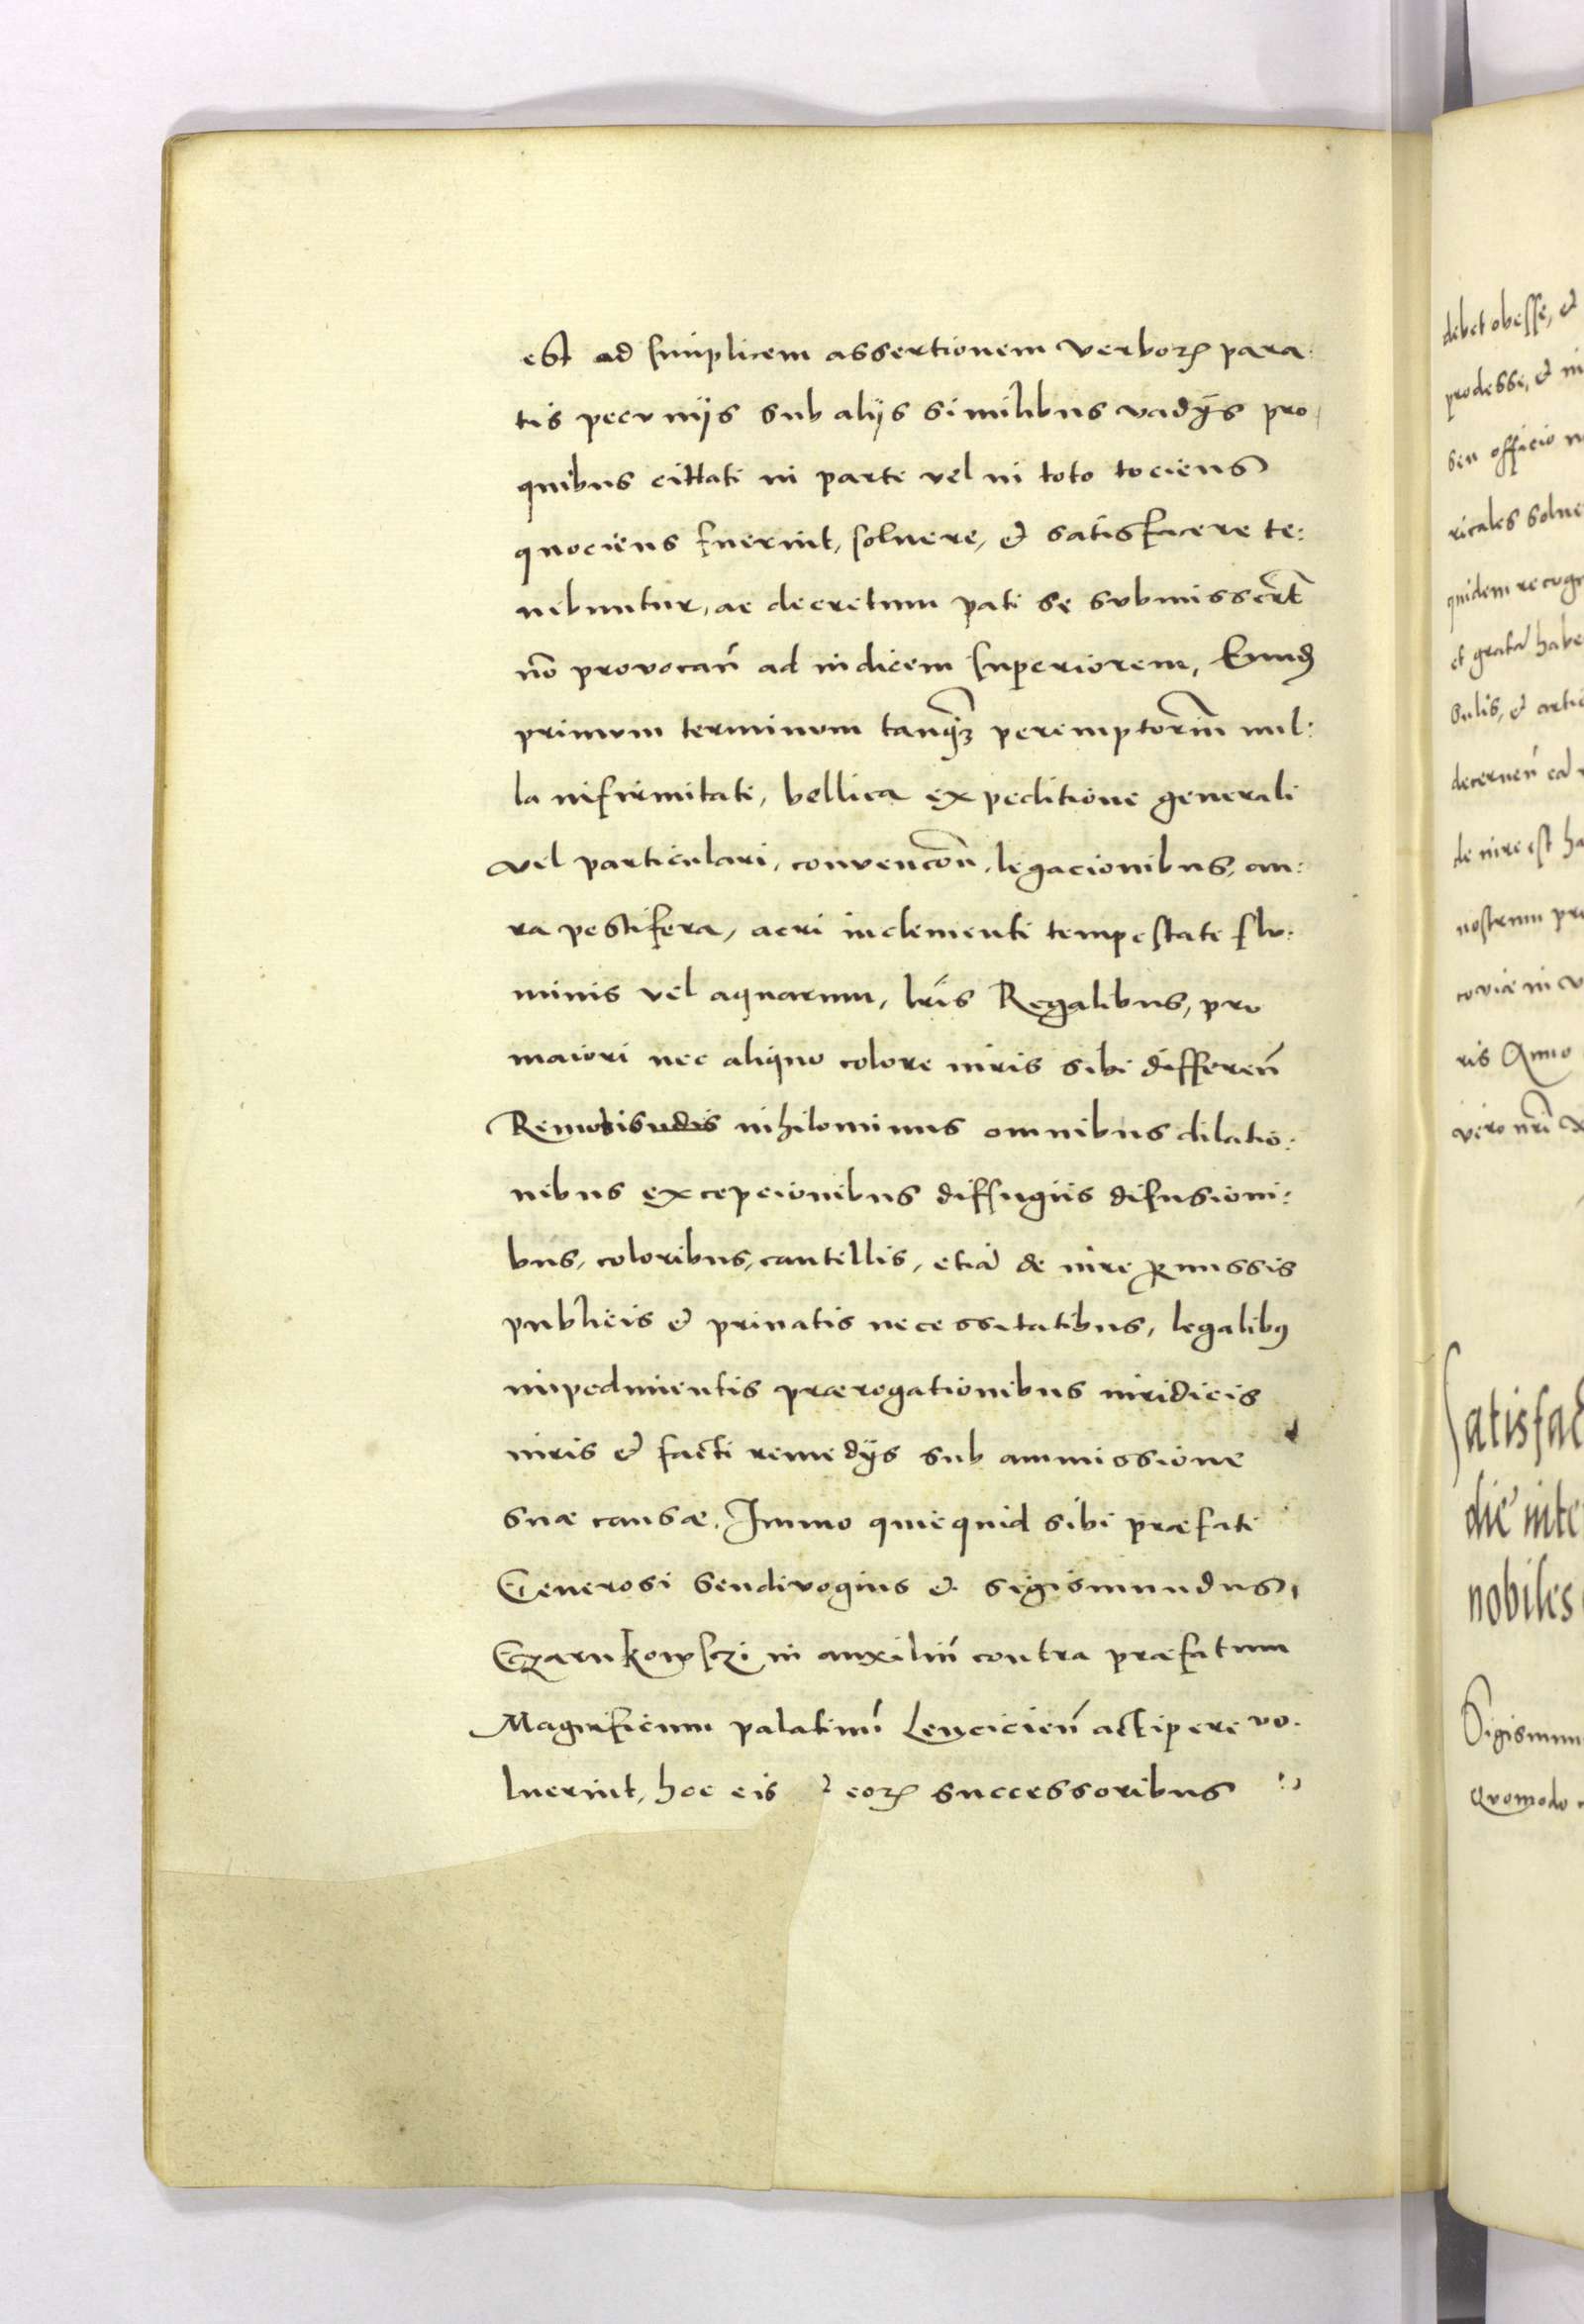 est ad simplicem assertionem verboꝝ para:
tis pecuniis sub alijs similibus vadÿs pro,
quibus cittati in parte vel in toto tociens
quociens fuerint, solvere, & satisfacere te:
nebuntur, ac decretum pati se submissert̃
nõ provocañ ad iudicem superiorem, Eundẽ
primum terminum tanq̃ꝫ peremptoriũ nul:
la infirmitati, bellica expeditione generali
vel particulari, convencõn, legacionibus, au:
ra pestifera, aeri inclementi tempestate flu:
minis vel aquarum, lrĩs Regalibus, pro
maiori nec aliquo colore iuris sibi differeñ
Remotis nihilominus omnibus dilatio:
nibus excepcionibus diffugiis difusioni:
bus, coloribus, cautellis, etiã de iure ꝑmissis
publicis & privatis necessitatibus, legalibꝰ
impedimentis prærogationibus iuridicis
iuris & facti remedÿs sub ammissione
suæ causæ. Immo quicquid sibi præfati
Generosi Sendivogius & Sigismundus,
Czarnkowsczi in auxiliũ contra præfatum
Magnificum palatinũ Lencicieñ actipere vo.
luerint, hoc eis & eoꝝ successoribus
debet obesse, &
prodesse, & in
seu officio
ricales
quidem
et gratã habe
sulis, & artic
decerneñ eã
de iure est ha
nostrum pre
coviæ in
ris Anno
vero nrĩ
Satisfac
die inte
nobiles
Sigismun
Quomodo